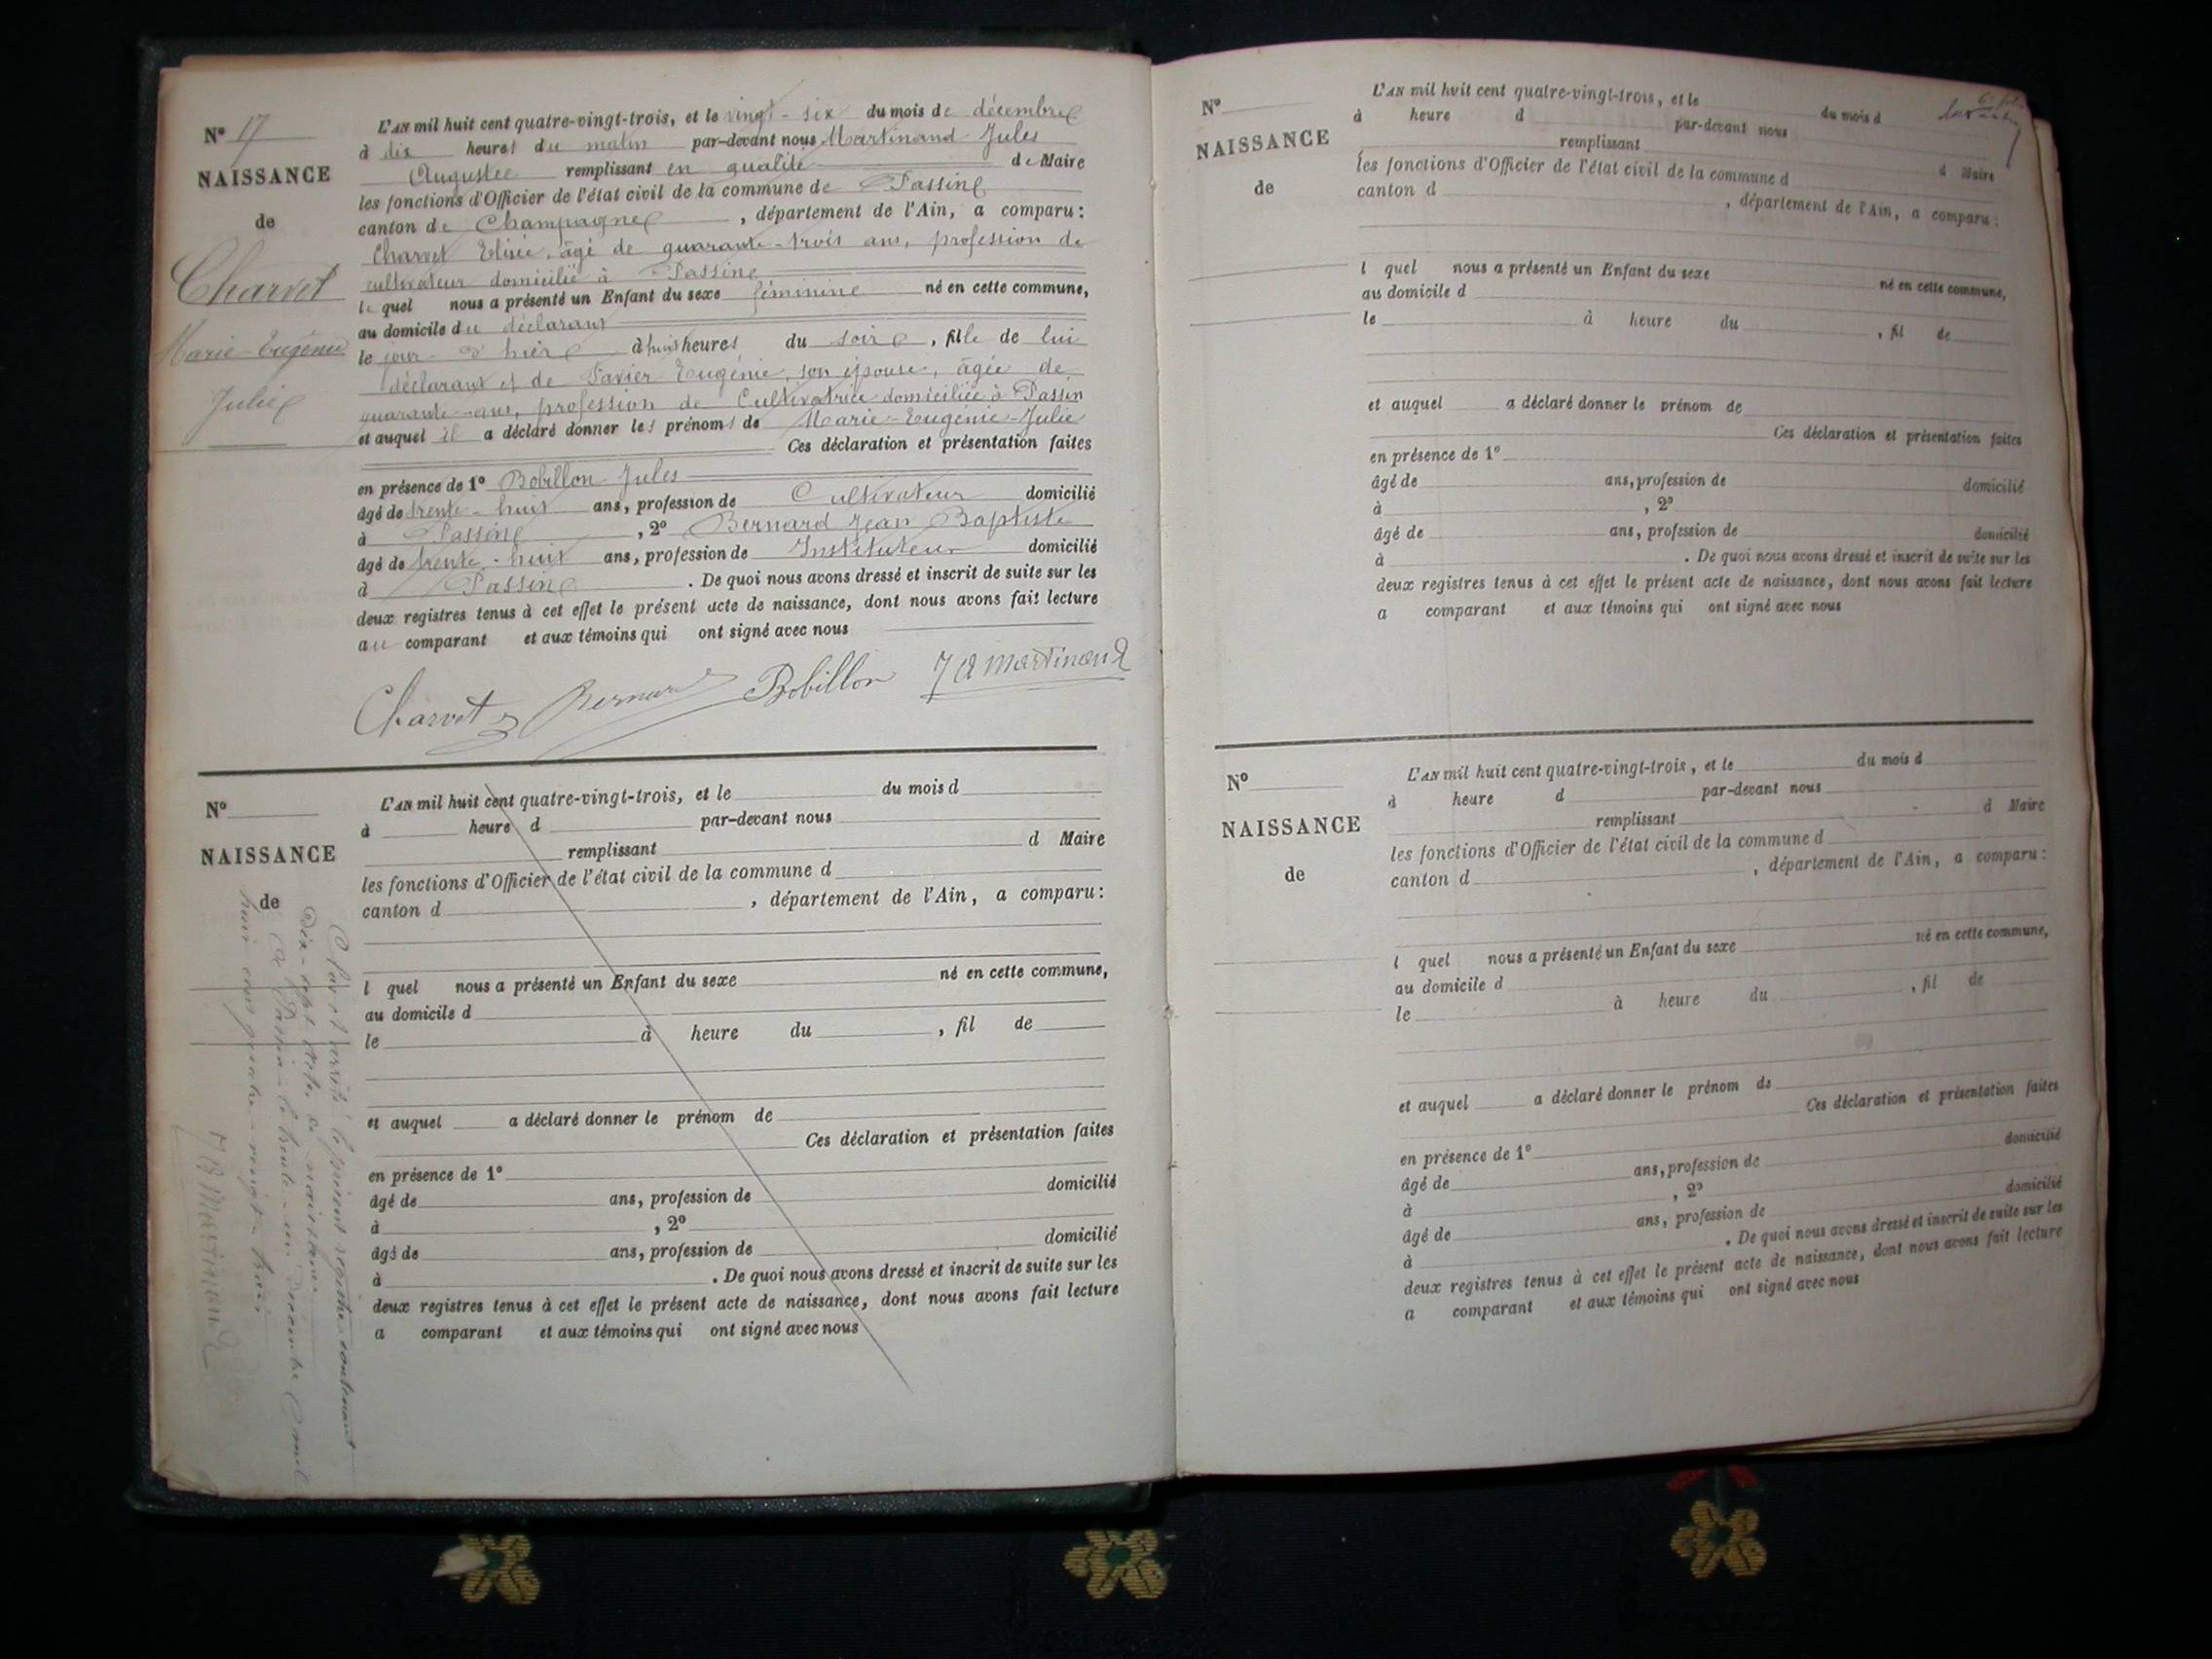 N° 17
NAISSANCE
de
Charvet
Marie-Eugénie
Julie
L'AN mil huit cent quatre-vingt-trois, et le vingt-six du mois de décembre
à dix heures du matin par-devant nous Martinand Jules
Auguste remplissant en qualité de Maire
les fonctions d'Officier de l'état civil de la commune de Passin
canton de Champagne, département de l'Ain, a comparu:
Charvet Elisée, âgé de quarante-trois ans, profession de
cultivateur domicilié à Passin
lequel nous a présenté un Enfant du sexe féminine né en cette commune,
au domicile du déclarant
le jour d'hier à huit heures du soir, fille de lui
déclarant et de Savier Eugénie, son épouse, âgée de
quarante ans, profession de Cultivatrice domiciliée à Passin
et auquel il a déclaré donner les prénoms de Marie-Eugénie-Julie
Ces déclaration et présentation faites
en présence de 1° Bobillon Jules
âgé de trente-huit ans, profession de Cultivateur domicilié
à Passin, 2° Bernard Jean Baptiste
âgé de trente-huit ans, profession de Instituteur domicilié
à Passin. De quoi nous avons dressé et inscrit de suite sur les
deux registres tenus à cet effet le présent acte de naissance, dont nous avons fait lecture
au comparant et aux témoins qui ont signé avec nous
Charvet Bernard Bobillon J A Martinand
N°
NAISSANCE
de
L'AN mil huit cent quatre-vingt-trois, et le du mois d
à heure d par-devant nous
remplissant d Maire
les fonctions d'Officier de l'état civil de la commune d
canton d , département de l'Ain, a comparu:
l quel nous a présenté un Enfant du sexe né en cette commune,
au domicile d
le à heure du , fil de
et auquel a déclaré donner le prénom de
Ces déclaration et présentation faites
en présence de 1°
âgé de ans, profession de domicilié
à , 2°
âgé de ans, profession de domicilié
à . De quoi nous avons dressé et inscrit de suite sur les
deux registres tenus à cet effet le présent acte de naissance, dont nous avons fait lecture
a comparant et aux témoins qui ont signé avec nous
le présent registre contenant
Dix-sept actes de naissance
A Passin le trente-un Décembre mil
huit cent quatre-vingt-trois
J A Martinand
N°
NAISSANCE
de
L'AN mil huit cent quatre-vingt-trois, et le du mois d
à heure d par-devant nous
remplissant d Maire
les fonctions d'Officier de l'état civil de la commune d
canton d , département de l'Ain, a comparu:
l quel nous a présenté un Enfant du sexe né en cette commune,
au domicile d
le à heure du , fil de
et auquel a déclaré donner le prénom de
Ces déclaration et présentation faites
en présence de 1°
âgé de ans, profession de domicilié
à , 2°
âgé de ans, profession de domicilié
à . De quoi nous avons dressé et inscrit de suite sur les
deux registres tenus à cet effet le présent acte de naissance, dont nous avons fait lecture
a comparant et aux témoins qui ont signé avec nous
N°
NAISSANCE
de
L'AN mil huit cent quatre-vingt-trois, et le du mois d
à heure d par-devant nous
remplissant d Maire
les fonctions d'Officier de l'état civil de la commune d
canton d , département de l'Ain, a comparu:
l quel nous a présenté un Enfant du sexe né en cette commune,
au domicile d
le à heure du , fil de
et auquel a déclaré donner le prénom de
Ces déclaration et présentation faites
en présence de 1°
âgé de ans, profession de domicilié
à , 2°
âgé de ans, profession de domicilié
à . De quoi nous avons dressé et inscrit de suite sur les
deux registres tenus à cet effet le présent acte de naissance, dont nous avons fait lecture
a comparant et aux témoins qui ont signé avec nous